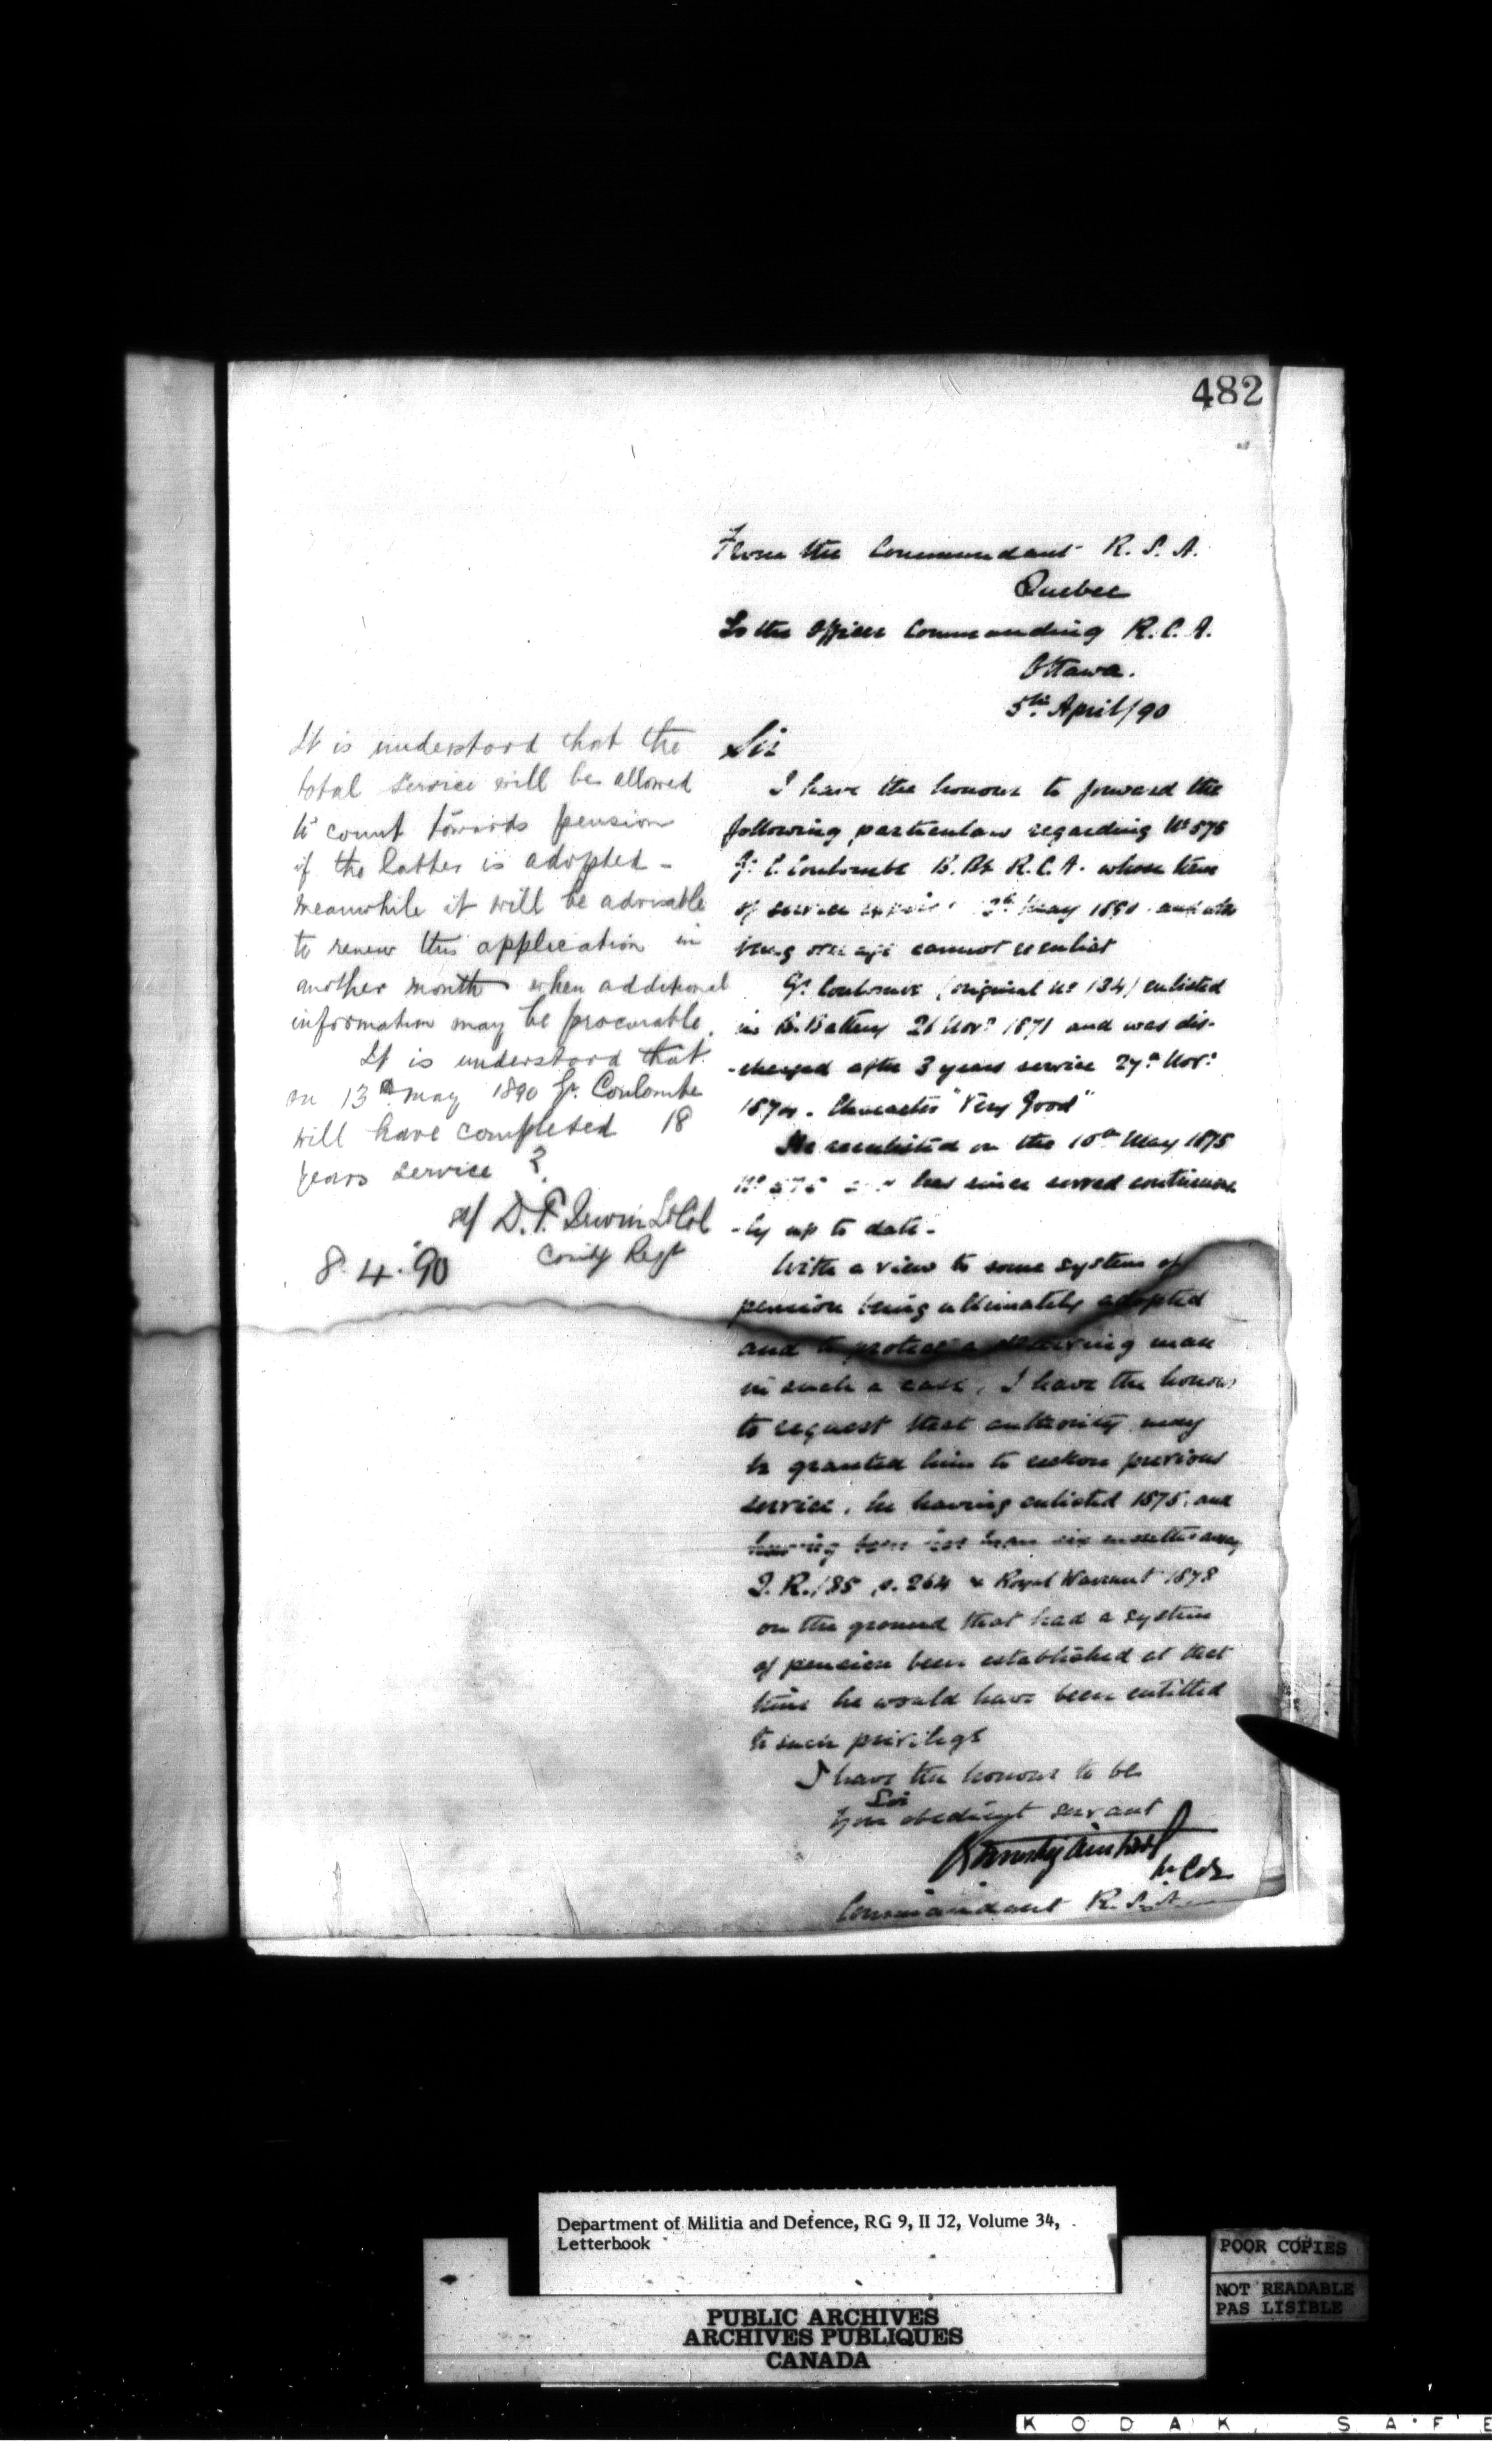 482
From the Commandant R. S. A.
Quebec
To the Officer Commanding R. C. A.
Ottawa.
5th April/90
Sir
I have the honour to forward the
following particulars regarding No 575
Gr. C. Coulombe B. Bt R. C. A. whose term
of service May 1890 and who
being over age cannot reenlist
Gr. Coulombe (original No 134) enlisted
in B. Battery 26 Novr 1871 and was dis-
-charged after 3 years service 27th Novr
1874. Character "Very Good"
He reenlisted on the 10th May 1875
No 575 has since served continuous
-ly up to date -
With a view to some system of
pension being ultimately adopted
and to protect a deserving man
in such a case, I have the honour
to request that authority may
be granted him to reckon previous
service, he having enlisted 1875, and
having been less than six months away
Q. R./85 p. 264 & Royal Warrant 1878
on the ground that had a system
of pension been established at that
time he would have been entitled
to such privilege
I have the honour to be
Sir
Your obedient servant
Lt Col
Commandant R. S. A.
It is understood that the
total service will be allowed
to count towards pension
if the latter is adopted -
meanwhile it will be advisable
to renew this application in
another month when additional
information may be procurable.
It is understood that
on 13th May 1890 Gr. Coulombe
will have completed 18
years service ?
sd/ D. T. Irwin Lt Col
Comdg Regt
8.4.90
Department of Militia and Defence, RG 9, II J2, Volume 34,
Letterbook
POOR COPIES
NOT READABLE
PAS LISIBLE
PUBLIC ARCHIVES
ARCHIVES PUBLIQUES
CANADA
KODAK SAFE